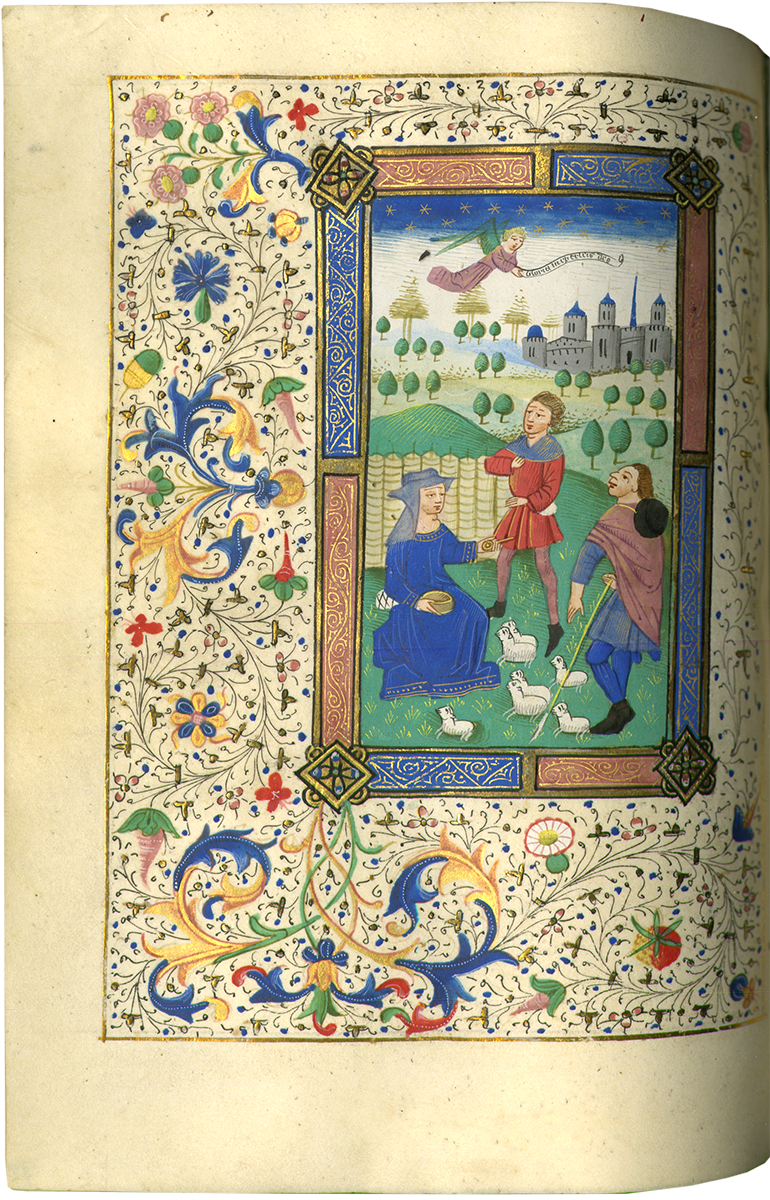 Gloria in excelsis deo